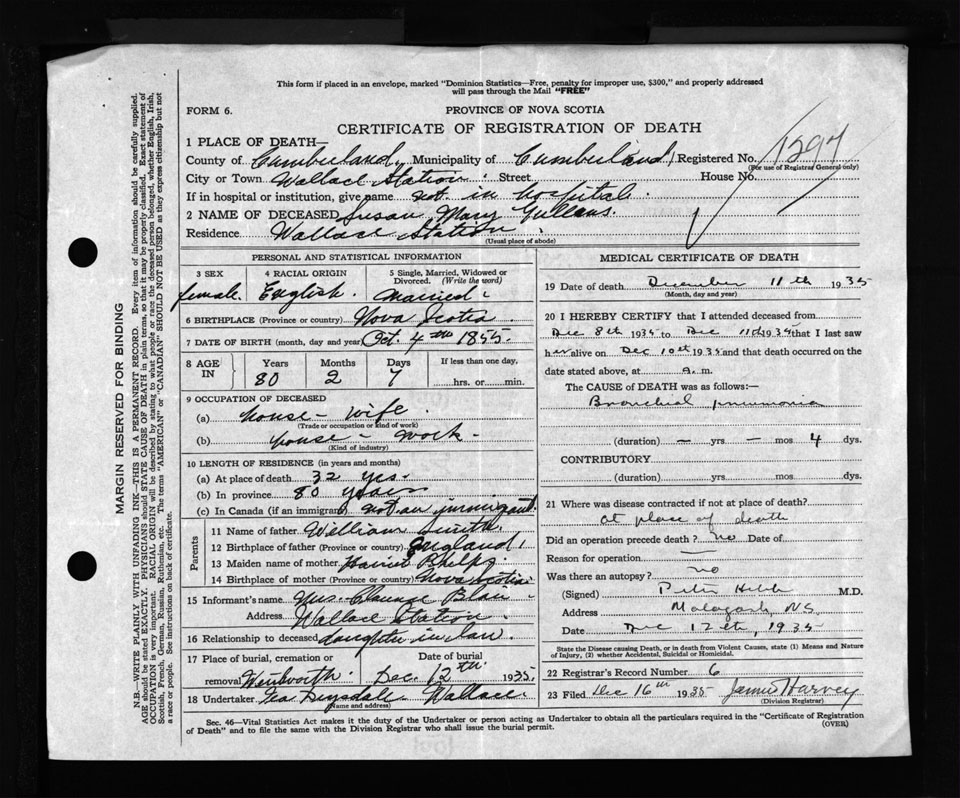 This form if placed in an envelope, marked "Dominion Statistics—Free, penalty for improper use, $300," and properly addressed
will pass through the Mail "FREE"
FORM 6.
PROVINCE OF NOVA SCOTIA
CERTIFICATE OF REGISTRATION OF DEATH
1 PLACE OF DEATH—
County of Cumberland, Municipality of Cumberland Registered No. 1297
(For use of Registrar General only)
City or Town Wallace Station Street House No.
If in hospital or institution, give name not in hospital.
2 NAME OF DECEASED Susan Mary
Residence Wallace Station
(Usual place of abode)
PERSONAL AND STATISTICAL INFORMATION
3 SEX 4 RACIAL ORIGIN 5 Single, Married, Widowed or Divorced. (Write the word)
female. English. Married.
6 BIRTHPLACE (Province or country) Nova Scotia
7 DATE OF BIRTH (month, day and year) Oct. 4th 1855.
8 AGE IN Years Months Days If less than one day.
80 2 7 hrs. or min.
9 OCCUPATION OF DECEASED
(a) house-wife.
(Trade or occupation or kind of work)
(b) house-work-
(Kind of industry)
10 LENGTH OF RESIDENCE (in years and months)
(a) At place of death 32 yrs.
(b) In province 80 years
(c) In Canada (if an immigrant) not an immigrant.
Parents
11 Name of father William Smith
12 Birthplace of father (Province or country) England
13 Maiden name of mother Phelps
14 Birthplace of mother (Province or country) Nova Scotia
15 Informant's name Mrs. Clarence
Address Wallace Station.
16 Relationship to deceased daughter in law.
17 Place of burial, cremation or removal Date of burial
Wentworth. Dec. 12th 1935.
18 Undertaker Wallace
(Name and address)
MEDICAL CERTIFICATE OF DEATH
19 Date of death December 11th 1935
(Month, day and year)
20 I HEREBY CERTIFY that I attended deceased from
Dec 8th 1935 to Dec 11th 1935 that I last saw
her alive on Dec 10th 1935 and that death occurred on the
date stated above, at a. m.
The CAUSE OF DEATH was as follows:—
Bronchial pneumonia
(duration) — yrs — mos 4 dys.
CONTRIBUTORY
(duration) yrs. mos. dys.
21 Where was disease contracted if not at place of death?
at place of death
Did an operation precede death? no Date of
Reason for operation —
Was there an autopsy? no
(Signed) Peter M.D.
Address Malagash, NS
Date Dec 12th, 1935
State the Disease causing Death, or in death from Violent Causes, state (1) Means and Nature
of Injury, (2) whether Accidental, Suicidal or Homicidal.
22 Registrar's Record Number 6
23 Filed Dec 16th 1935 Harvey
(Division Registrar)
Sec. 46—Vital Statistics Act makes it the duty of the Undertaker or person acting as Undertaker to obtain all the particulars required in the "Certificate of Registration
of Death" and to file the same with the Division Registrar who shall issue the burial permit.
(OVER)
MARGIN RESERVED FOR BINDING
N.B.—WRITE PLAINLY WITH UNFADING INK—THIS IS A PERMANENT RECORD. Every item of information should be carefully supplied.
AGE should be stated EXACTLY. PHYSICIANS should STATE CAUSE OF DEATH in plain terms, so that it may be properly classified. Exact statement of
OCCUPATION is very important. RACIAL ORIGIN will be described by stating to what people or race the deceased person belonged, whether English, Irish,
Scottish, French, German, Russian, Ruthenian, etc. The terms "AMERICAN" or "CANADIAN" SHOULD NOT BE USED as they express citizenship but not
a race or people. See instructions on back of certificate.